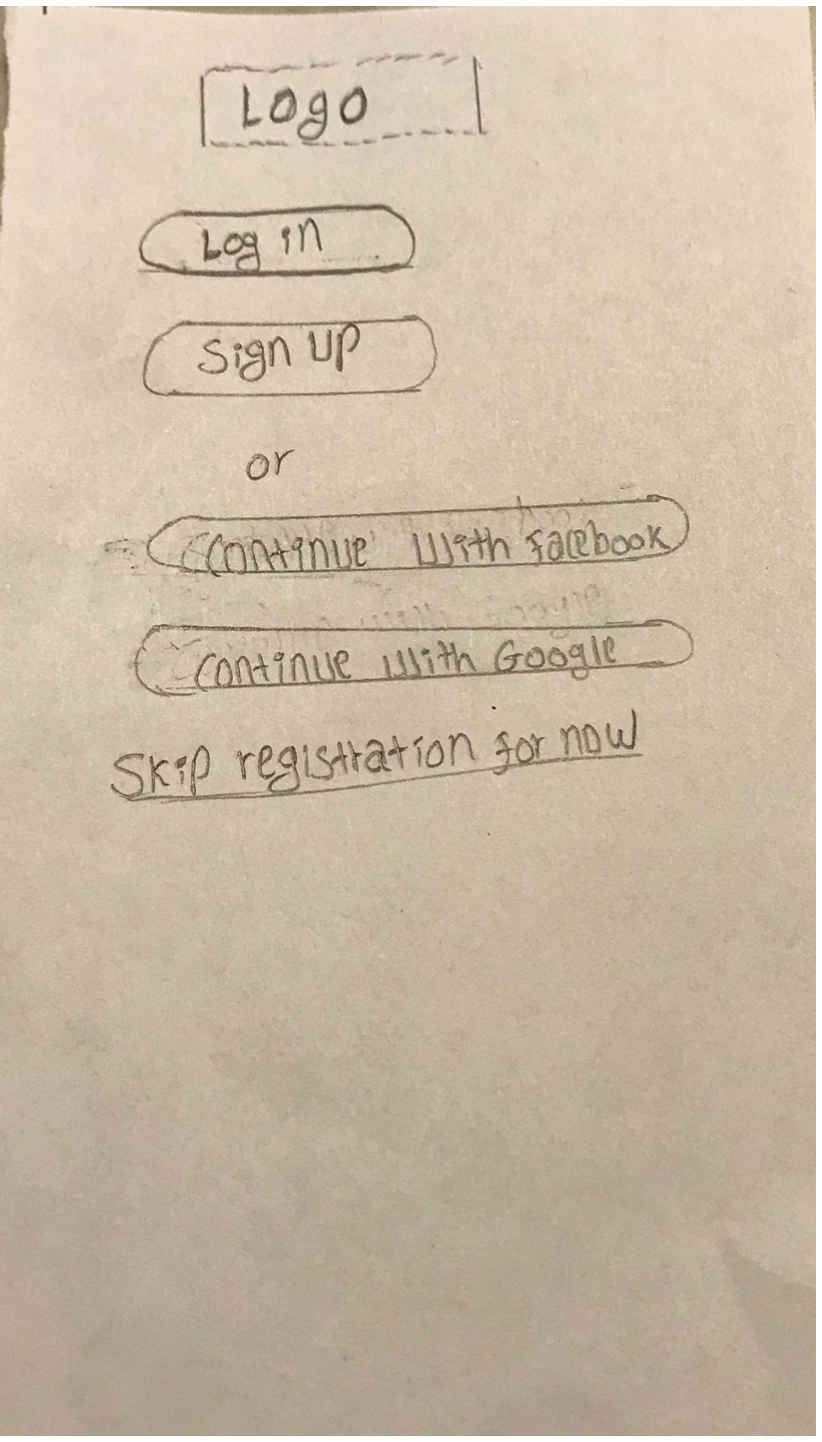 Logo
Log in
Sign up
or
Continue with facebook
Continue with Google
Skip registration for now